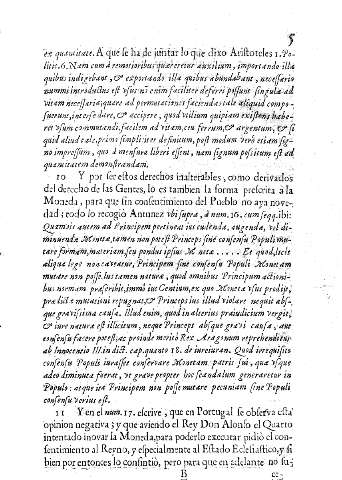 5
ex quantitate. A que se ha de juntar lo que dixo Aristoteles 1. Po-
litic. 6. Nam cum à remotioribus quæreretur auxilium, importando illa
quibus indigebant, & exportando illa quibus abundabant, necessario
nummi introductus est vsus: ni enim faciliter deferri possunt singula ad
vitam necessaria; quare ad permutationes faciendas tale aliquid compo-
suerunt, inter se dare, & accipere, quod vtilium quipiam existens habe-
ret vsum commutandi, facilem ad vitam, ceu ferrum, & argentum, & si
quid aliud tale, primò simpliciter definitum, postmodum verò etiam sig-
no impressum, quo à mensura liberi essent, nam signum positum est ad
quantitatem demonstrandam.
10 Y por ser estos derechos inalterables, como derivados
del derecho de las Gentes, lo es tambien la forma prescrita à la
Moneda, para que sin consentimiento del Pueblo no aya nove-
dad; todo lo recogiò Antunez vbi supra, à num. 16. cum seqq. ibi:
Quamvis autem ad Principem pertineat ius cudenda, augenda, vel di-
minuenda Monetæ, tamen non potest Princeps sinè consensu Populi mu-
tare formam, materiam, seu pondus ipsius Monetæ ..... Et quod, licèt
aliqua lege non caveatur, Principem sinè consensu Populi Monetam
mutare non posse. Ius tamen naturæ, quod omnibus Principum actioni-
bus normam præscribit, immò ius Gentium, ex quo Moneta vsus prodijt,
prædictæ mutationi repugnat, & Princeps ius illud violare nequit abs-
que gravissima causa. Illud enim, quod in alterius præiudicium vergit,
& iure naturæ est illicitum, neque Princeps absque gravi causa, aut
consensu facere potest; ac proinde meritò Rex Aragonum reprehenditur
ab Innocentio III. in dict. cap. quanto 18. de iureiuran. Quod irrequisito
consensu Populi iurasset conservare Monetam patris sui, quæ vsque
adeo diminuta fuerat, vt grave propter hoc scandalum generaretur in
Populo: atque ita Principem non posse mutare pecuniam sinè Populi
consensu verius est.
11 Y en el num. 17. escrive, que en Portugal se observa esta
opinion negativa; y que aviendo el Rey Don Alonso el Quarto
intentado inovar la Moneda, para poderlo executar pidiò el con-
sentimiento al Reyno, y especialmente al Estado Eclesiastico, y si
bien por entonces lo consintiò, pero para que en adelante no su-
B ce-